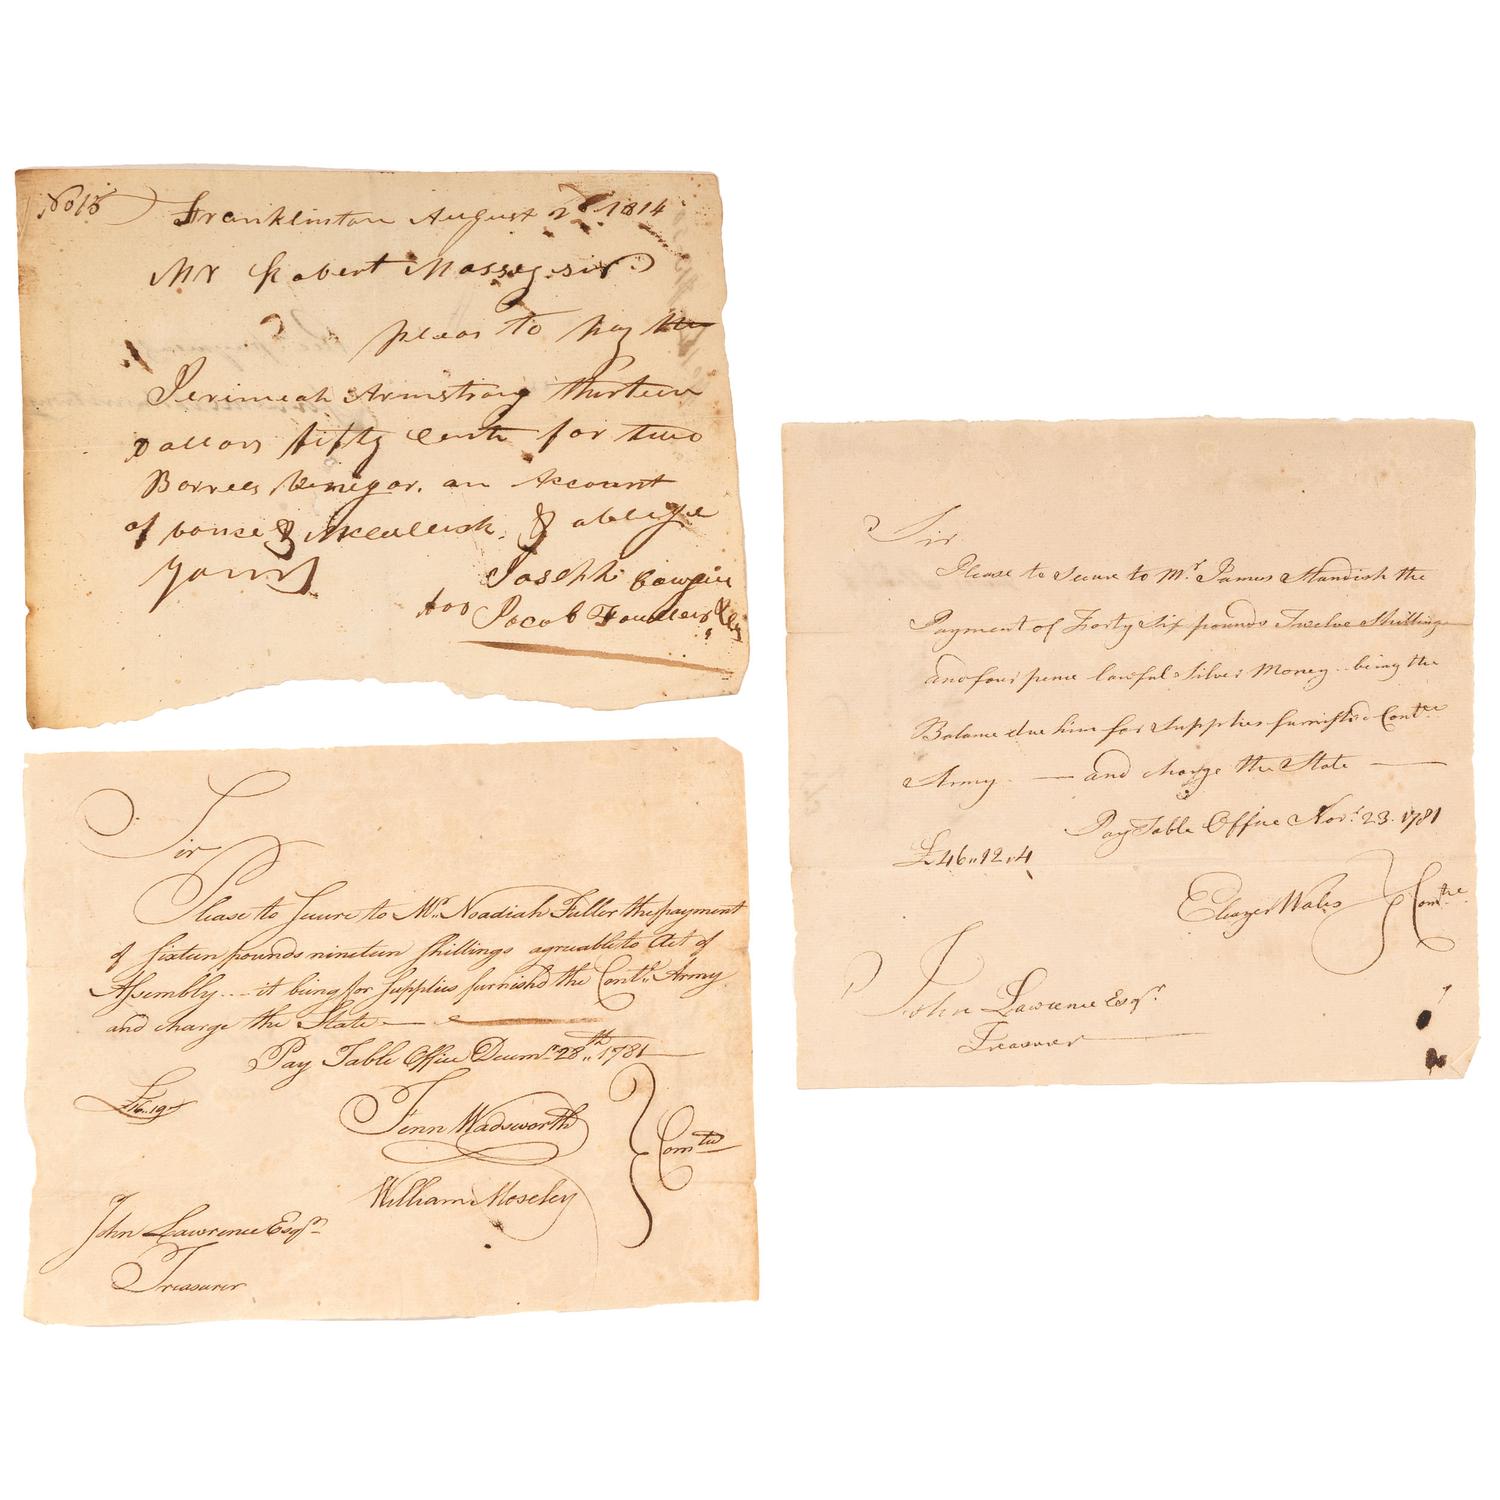 No 13
Franklinton August 2d 1814
Mr Robert Massey sir
pleas to pay the
Jerimeah Armstrong thirteen
Dollars fifty Cents for two
Barrels Vinegar. on Account
of & & oblige
Yours
Joseph
Jacob Fowler
Sir
Please to Secure to Mr. Noadiah Fuller the payment
of sixteen pounds nineteen shillings agreeable to Act of
Assembly - - - it being for supplies furnish'd the Contl. Army
and charge the State
Pay Table Office Decemr. 28th, 1781
£16.19
Fenn Wadsworth
Comtee
William Moseley
John Lawrence Esqr.
Treasurer
Sir
Please to Secure to Mr. James Standish the
Payment of Forty Six pounds Twelve Shillings
and four pence lawful Silver Money being the
Balance due him for Supplies furnish'd
Army — and charge the State —
Pay Table Office Novr. 23. 1781
£46,,12,,4
Eleazer Wales Comtee
John Lawrence Esqr.
Treasurer